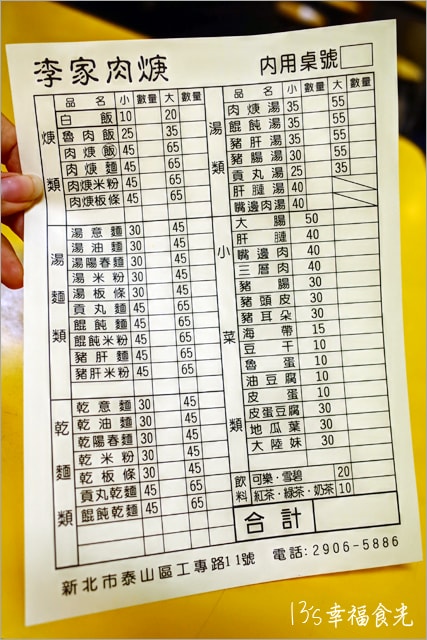 李家肉焿 內用桌號
品名 小 數量 大 數量
焿類
白飯 10 20
魯肉飯 25 35
肉焿飯 45 65
肉焿麵 45 65
肉焿米粉 45 65
肉焿板條 45 65
湯麵類
湯意麵 30 45
湯油麵 30 45
湯陽春麵 30 45
湯米粉 30 45
湯板條 30 45
貢丸麵 45 65
餛飩麵 45 65
餛飩米粉 45 65
豬肝麵 45 65
豬肝米粉 45 65
乾麵類
乾意麵 30 45
乾油麵 30 45
乾陽春麵 30 45
乾米粉 30 45
乾板條 30 45
貢丸乾麵 45 65
餛飩乾麵 45 65
品名 小 數量 大 數量
湯類
肉焿湯 35 55
餛飩湯 35 55
豬肝湯 35 55
豬腸湯 30 55
貢丸湯 25 35
肝腱湯 40
嘴邊肉湯 40
小菜類
大腸 50
肝腱 40
嘴邊肉 40
三層肉 40
豬腸 30
豬頭皮 30
豬耳朵 30
海帶 15
豆干 10
魯蛋 10
油豆腐 10
皮蛋 10
皮蛋豆腐 30
地瓜葉 30
大陸妹 30
飲料
可樂·雪碧 20
紅茶·綠茶·奶茶 10
合計
新北市泰山區工專路11號 電話:2906-5886
13's幸福食光